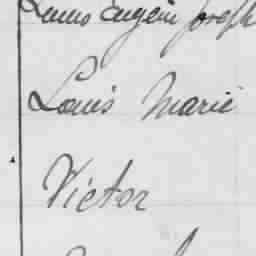 Louis Eugène Joseph
Louis Marie
Victor